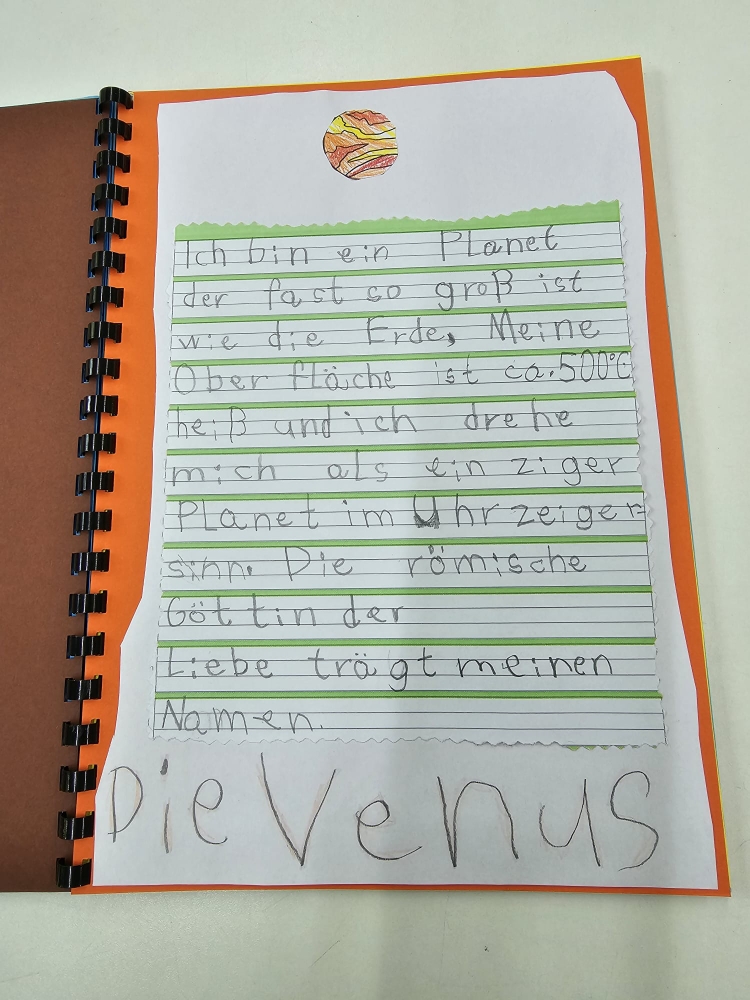 Ich bin ein Planet
der fast so groß ist
wie die Erde, Meine
Ober fläche ist ca. 500°C
heiß und ich drehe
mich als ein ziger
Planet im Uhr zeiger-
sinn. Die römische
Göt tin der
Liebe trägt meinen
Namen.
Die Venus